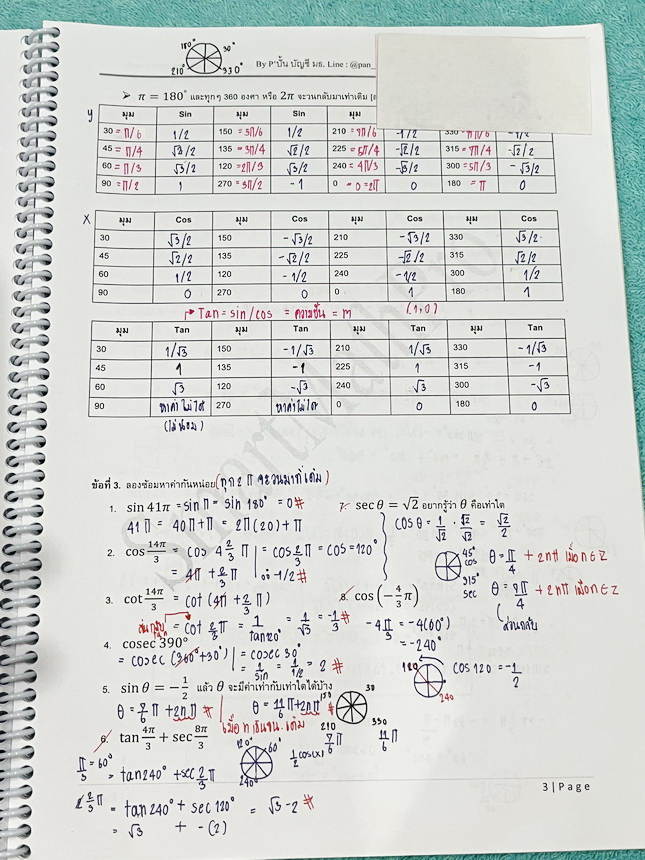 180° 30°
210° 330°
By P'ปั้น บัญชี มธ. Line : @pan_
➤ π = 180° และทุกๆ 360 องศา หรือ 2π จะวนกลับมาเท่าเดิม
y มุม Sin มุม Sin มุม
30 = π/6 1/2 150 = 5π/6 1/2 210 -1/2 330 -1/2
45 = π/4 135 = 3π/4 √2/2 225 = 5π/4 -√2/2 315 = 7π/4 -√2/2
60 = π/3 √3/2 120 = 2π/3 √3/2 240 = 4π/3 -√3/2 300 = 5π/3 -√3/2
90 = π/2 1 270 = 3π/2 -1 0 = 0 = 2π 0 180 = π 0
X มุม Cos มุม Cos มุม Cos มุม Cos
30 √3/2 150 -√3/2 210 -√3/2 330 √3/2
45 √2/2 135 -√2/2 225 -√2/2 315 √2/2
60 1/2 120 -1/2 240 -1/2 300 1/2
90 0 270 0 0 1 180 1
Tan = sin/cos = ความชัน = m (1,0)
มุม Tan มุม Tan มุม Tan มุม Tan
30 1/√3 150 -1/√3 210 1/√3 330 -1/√3
45 1 135 -1 225 1 315 -1
60 √3 120 -√3 240 √3 300 -√3
90 หาค่าไม่ได้ 270 หาค่าไม่ได้ 0 0 180 0
(ไม่นิยาม)
ข้อที่ 3. ลองซ้อมหาค่ากันหน่อย (ทุก 2π จะวนมาที่เดิม)
1. sin 41π = sin π = sin 180° = 0 #
41π = 40π+π = 2π(20)+π
2. cos 14π/3 = cos 4 2/3 π = cos 2/3 π = cos = 120°
= 4π + 2/3 π = -1/2 #
3. cot 14π/3 = cot (4π + 2/3 π)
= cot 2/3 π = 1/tan120° = 1/√3 = -1/3 #
4. cosec 390°
= cosec (360°+30°) = cosec 30°
= 1/sin = 1/1/2 = 2 #
5. sin θ = -1/2 แล้ว θ จะมีค่าเท่ากับเท่าใดได้บ้าง
θ = 7/6 π + 2nπ # θ = 11/6 π + 2nπ # 150 30
210 330
7/6 π 11/6 π
6. tan 4π/3 + sec 8π/3
π/3 = 60° = tan240° + sec 2/3 π
120° 60°
240°
2 2/3 π = tan240° + sec 120° = √3 - 2 #
= √3 + -(2)
7. sec θ = √2 อยากรู้ว่า θ คือเท่าใด
cos θ = 1/√2 · √2/√2 = √2/2
45° cos θ = π/4 + 2nπ เมื่อ n ∈ Z
315° sec θ = 7π/4 + 2nπ เมื่อ n ∈ Z
ส่วนกลับ
8. cos (-4/3 π)
-4π/3 = -4(60)
= -240°
120 240 cos 120 = -1/2
3 | Page